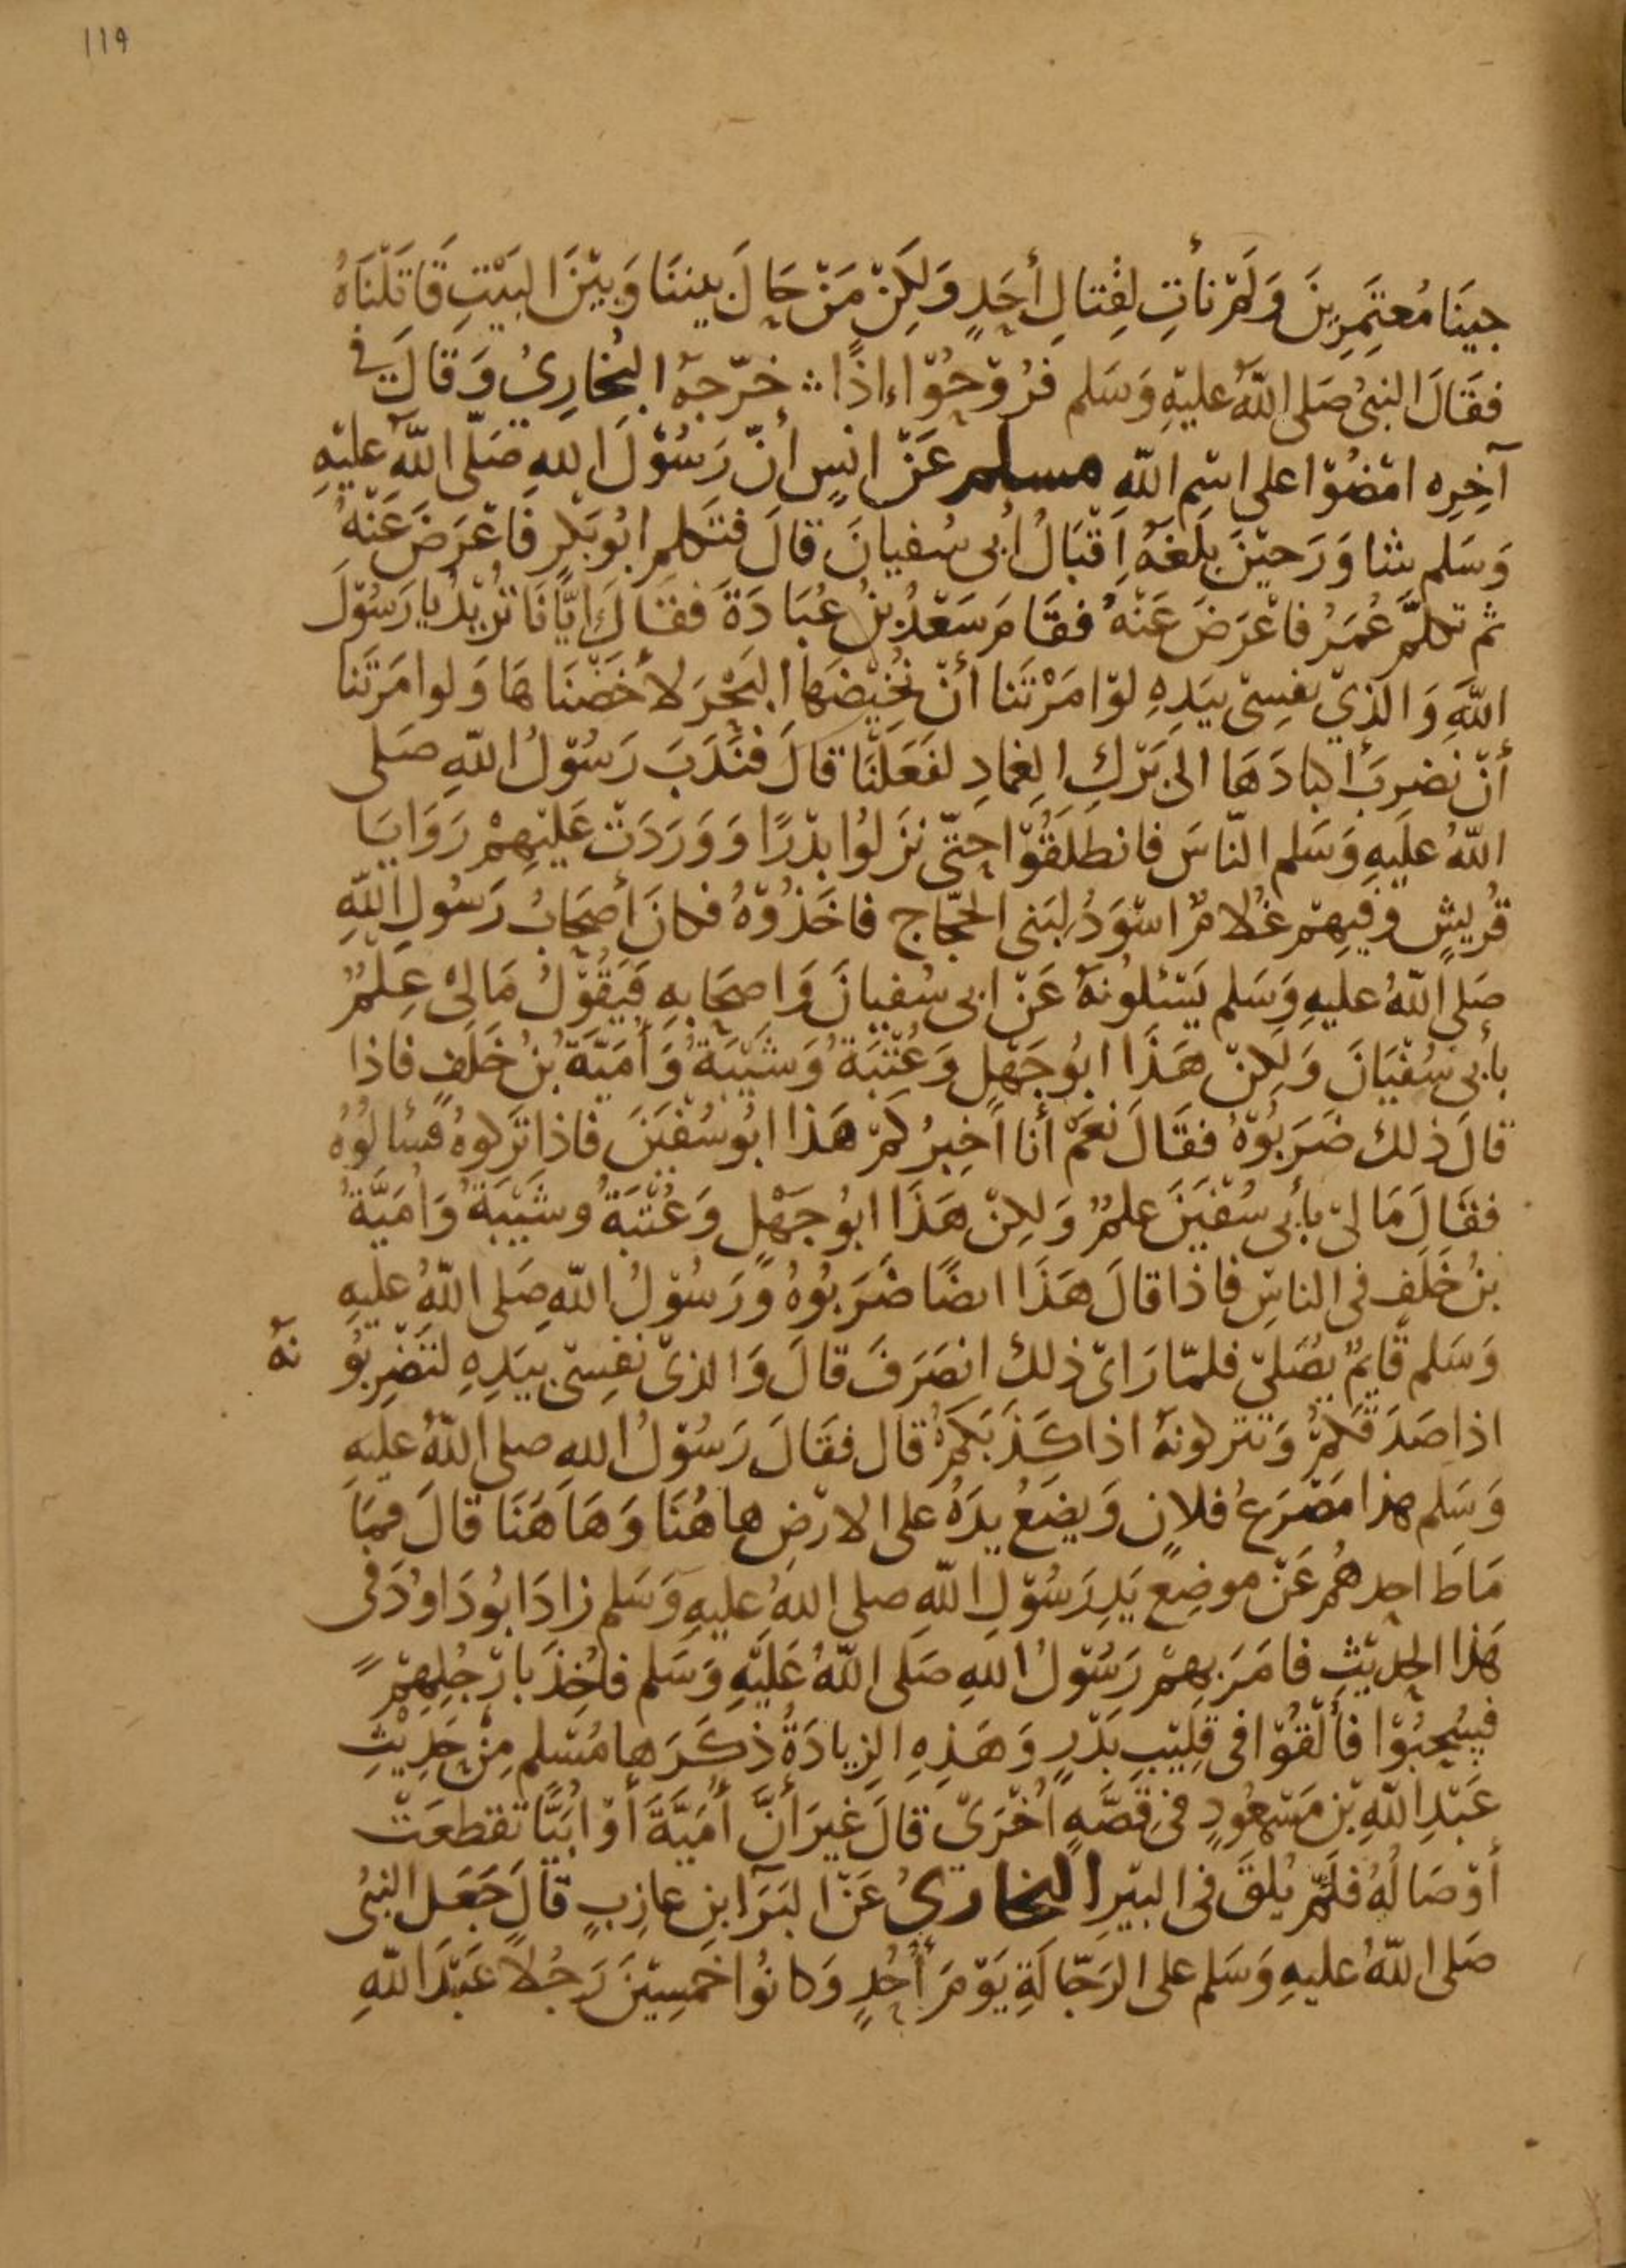 ١١٩
جينَا مُعتَمِرِينَ وَلَمْ نأتِ لِقتالِ أحَدٍ وَلَكِنْ مَنْ حَالَ بيننَا وَبيْنَ البَيْتِ قَاتَلْنَاهُ
فقَالَ النبىُ صَلى اللهُ عليْهِ وَسَلم فرُوْحُوْا إذًا ∴ خرّجهُ البُخارِىُ وَقالَ فى
آخِرِه امْضُوْا على اسْمِ اللهِ مسلم عَنْ انسٍ أنّ رَسُوْلَ اللهِ صَلّى اللهُ عليْهِ
وَسَلم شاوَرَ حيْنَ بلَغهُ إقْبَالُ أبى سُفيانَ قالَ فتَكلم ابُو بَكْرٍ فَاعْرَضَ عَنْهُ
ثم تكلّمَ عُمَرُ فاعْرَضَ عَنْهُ فقَامَ سَعْدُ بنُ عُبَادَةَ فقَالَ إيَّانَا تُرِيْدُ يا رَسُوْلَ
اللهِ وَالذِيْ نفسِىْ بيَدِهِ لوْ امَرْتَنا أنْ نُخيْضَهَا البَحْرَ لاخَضْنَاهَا وَلوا مَرتَنا
أنْ نَضرِبَ أكبادَهَا الى بَرْكِ الغِمادِ لفَعَلْنَا قالَ فنَدَبَ رَسُوْلُ اللهِ صَلى
اللهُ علَيهِ وَسَلم النّاسَ فانطَلَقُوْا حتّى نزَلوُا بدْرًا وَوَرَدَتْ عَليْهِمْ رَوَايَا
قُريشٍ وَفيهِمْ غُلامٌ اسْوَدُ لبَنى الحجّاج فاخَذُوْهُ فكانَ أصحَابُ رَسُولِ اللهِ
صَلى اللهُ عليهِ وَسَلم يَسْئلوُنهُ عَنْ ابى سُفيانَ وَاصحَابهِ فيَقُوْلُ مَا لِىْ عِلْمٌ
بأبى سُفْيَانَ وَلَكِنْ هَذَا ابُو جَهْلٍ وَعُتْبَةُ وَشَيْبَةُ وَأُمَيّةُ بنُ خَلَفٍ فاذا
قالَ ذلك ضَرَبُوْهُ فقَالَ نَعَمْ أنا اُخبِرُكمْ هَذا ابُو سُفْيَنَ فاذا تَركوهُ فسَالوُهُ
فقَالَ مَا لىْ بأبى سُفْيَنَ علمٌ وَلكِنْ هَذَا ابوُ جَهْلٍ وَعُتْبَةُ وشَيْبَةُ وَاُميَّةُ
بنُ خَلَفٍ فى الناسِ فاذا قالَ هَذَا ايضًا ضَرَبُوهُ وَرَسُوْلُ اللهِ صَلى اللهُ عليْهِ
وَسَلم قَايمٌ يصُلىْ فلمّا رَاىْ ذلك انصَرَفَ قالَ وَالذىْ نفسِىْ بيَدِهِ لتَضْرِبُو نهُ
اذا صَدَقكمْ وَتتركونهُ اذا كَذَبَكمْ قال فقَالَ رَسُوْلُ اللهِ صلى اللهُ عليهِ
وَسَلم هذا مَصْرَعُ فلانٍ وَيضَعُ يدَهُ على الارْضِ هاهُنَا وَهَاهَنَا قالَ فمَا
مَاطَ احدهُم عَنْ موضِع يَدِ رَسُوْلِ اللهِ صلى اللهُ عليهِ وَسَلم زادَ ابُو دَاوُدَ فى
هَذا الحدِيْثِ فامَرَ بهِمْ رَسُوْلُ اللهِ صَلى اللهُ عَليْهِ وَسَلم فاُخِذَ بارْجُلِهِمْ
فسُحِبُوْا فأُلْقُوْا فى قلِيْبِ بَدْرٍ وَهَذِهِ الزِيادَةُ ذكَرَهَا مُسْلم مِنْ حَدِيْثِ
عَبْدِ اللهِ بْنِ مَسْعُودٍ فى قِصَّهٍ اُخْرَىْ قالَ غيرَ أنَّ أُمَيَّةَ أوْ ابَيًّا تقطعَتْ
أوْصَالُهُ فلَمْ يُلقَ فى البيْرِ البخارىُ عَنْ البَرَآ ابنِ عازِبٍ قالَ جَعَل النبىُ
صَلى اللهُ عليهِ وَسَلم على الرَجّالَةِ يَوْمَ أُحُدٍ وَكانوُا خمسِيْنَ رَجُلاً عَبْدَ اللهِ